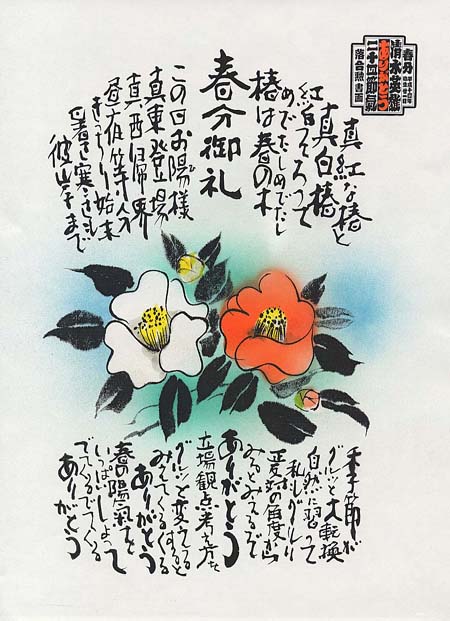 真紅な椿と
真白椿
紅白そろって
めでたしめでたし
椿は春の木
春分御礼
この日お陽様
真東登場
真西帰界
昼夜等分
きっちり始末
暑さ寒さも
彼岸まで
春分
清水英雄
ありがとう
二十四節氣
落合勲書画
季節が
グルッと大転換
自然に習って
私もグルリ
変えの角度から
みるとみえるで
ありがとう
立場観点考え方を
グルッと変えてみると
みえてくるくる
ありがとう
春の陽氣をを
いっぱいしょって
でてくるでてくる
ありがとう